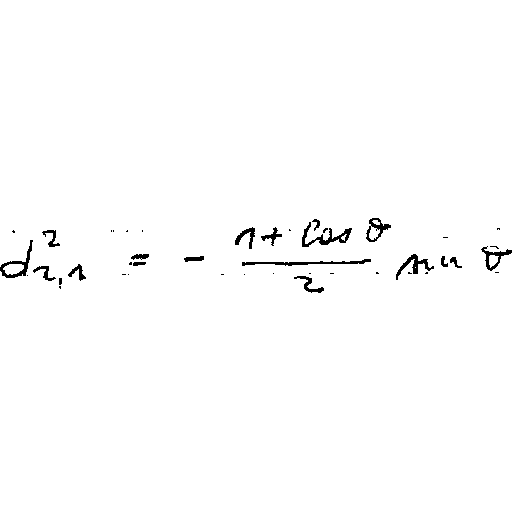 d^2_{2,1} = - \frac{1 + \cos \theta}{2} \sin \theta